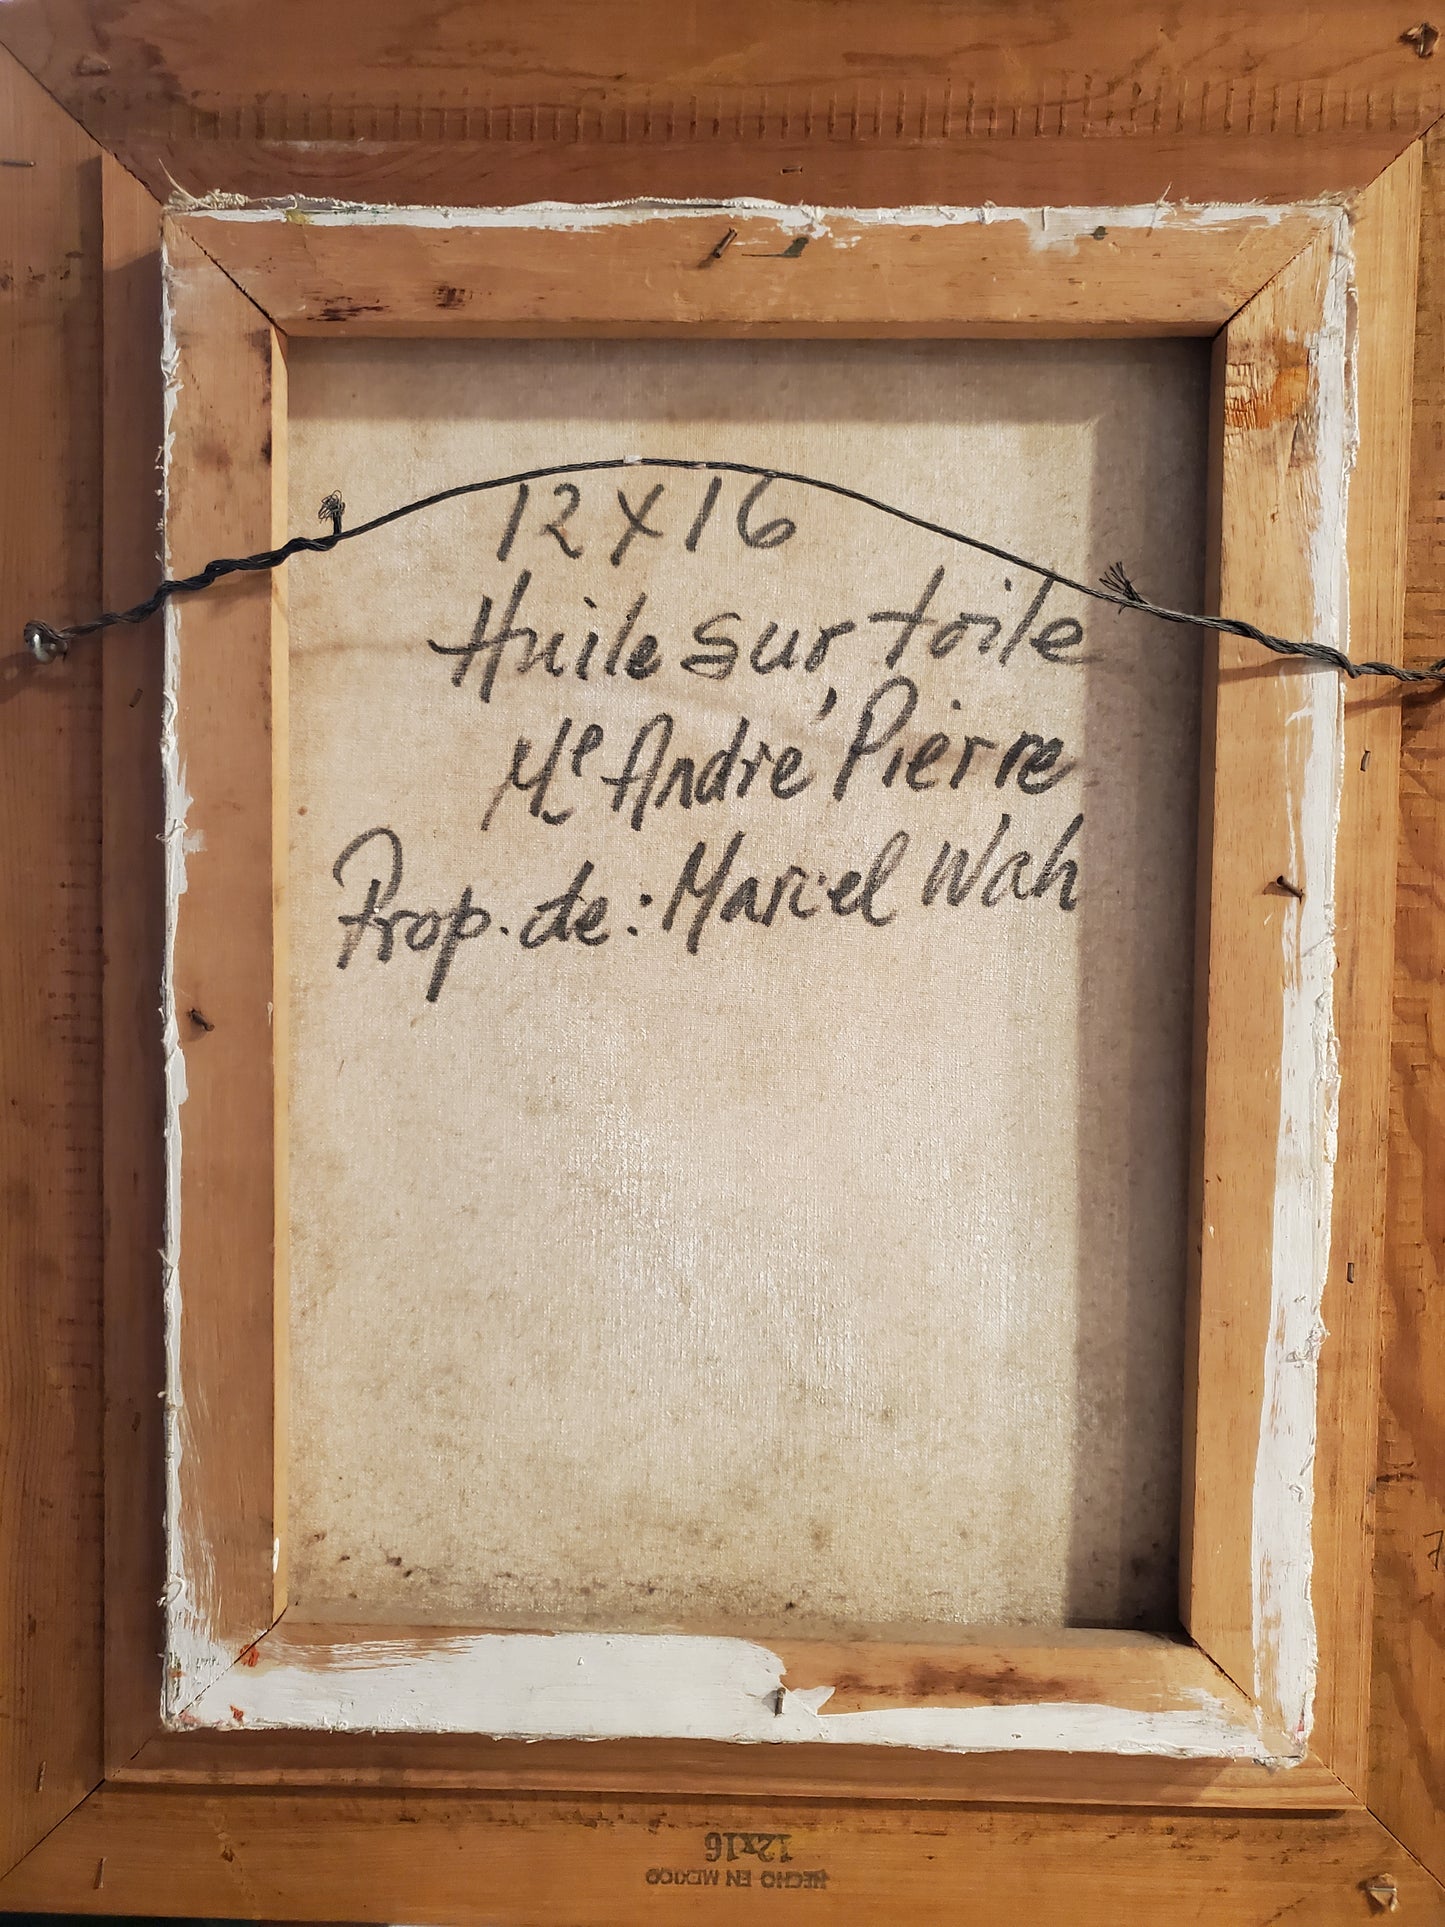 12 x 16
Huile sur toile
Me André Pierre
Prop. de: Marcel Wah
12x16
HECHO EN MEXICO